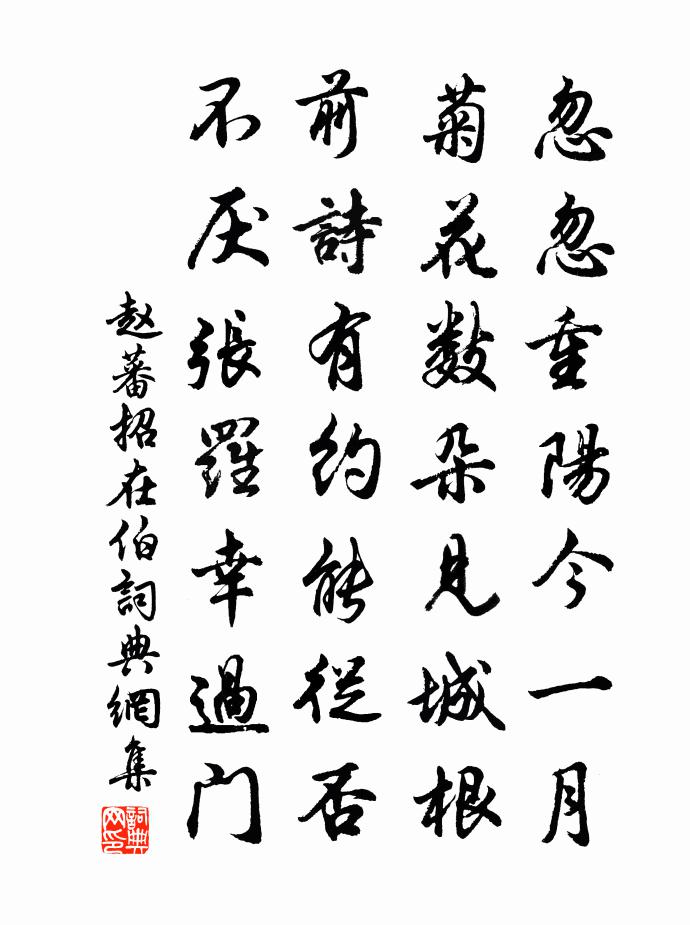 忽忽重陽今一月
菊花數朶見城根
前詩有約能從否
不厌張羅幸過门
赵蕃招在伯詞典網集
詞典网印